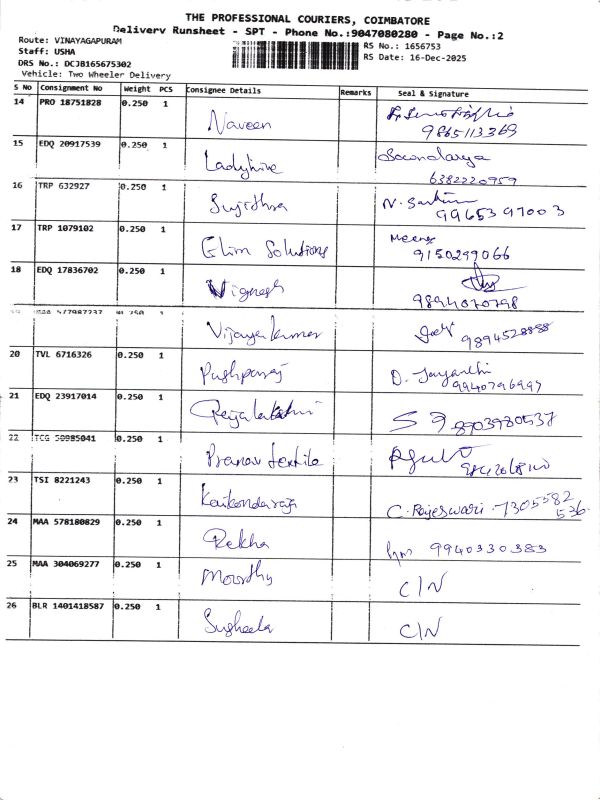 THE PROFESSIONAL COURIERS, COIMBATORE
Delivery Runsheet - SPT - Phone No.:9047080280 - Page No.:2
Route: VINAYAGAPURAM
Staff: USHA
DRS No.: DCJB165675302
Vehicle: Two Wheeler Delivery
RS No.: 1656753
RS Date: 16-Dec-2025
S No Consignment No Weight PCS Consignee Details Remarks Seal & Signature
14 PRO 18751828 0.250 1 Naveen
9865113369
15 EDQ 20917539 0.250 1
6382220959
16 TRP 632927 0.250 1 Sujithra
9965397003
17 TRP 1079102 0.250 1 Glim Solutions Meena
9150299066
18 EDQ 17836702 0.250 1 Vignesh
9894070798
Vijayakumar 9894528888
20 TVL 6716326 0.250 1 Pushparaj D. Jayanthi
9940796997
21 EDQ 23917014 0.250 1 8903980537
22 TCG 50985041 0.250 1 Pranav textile
23 TSI 8221243 0.250 1 C. Rajeswari. 7305582
536.
24 MAA 578180829 0.250 1 Rekha 9940330383
25 MAA 304069277 0.250 1 Moorthy C/N
26 BLR 1401418587 0.250 1 Susheela C/N